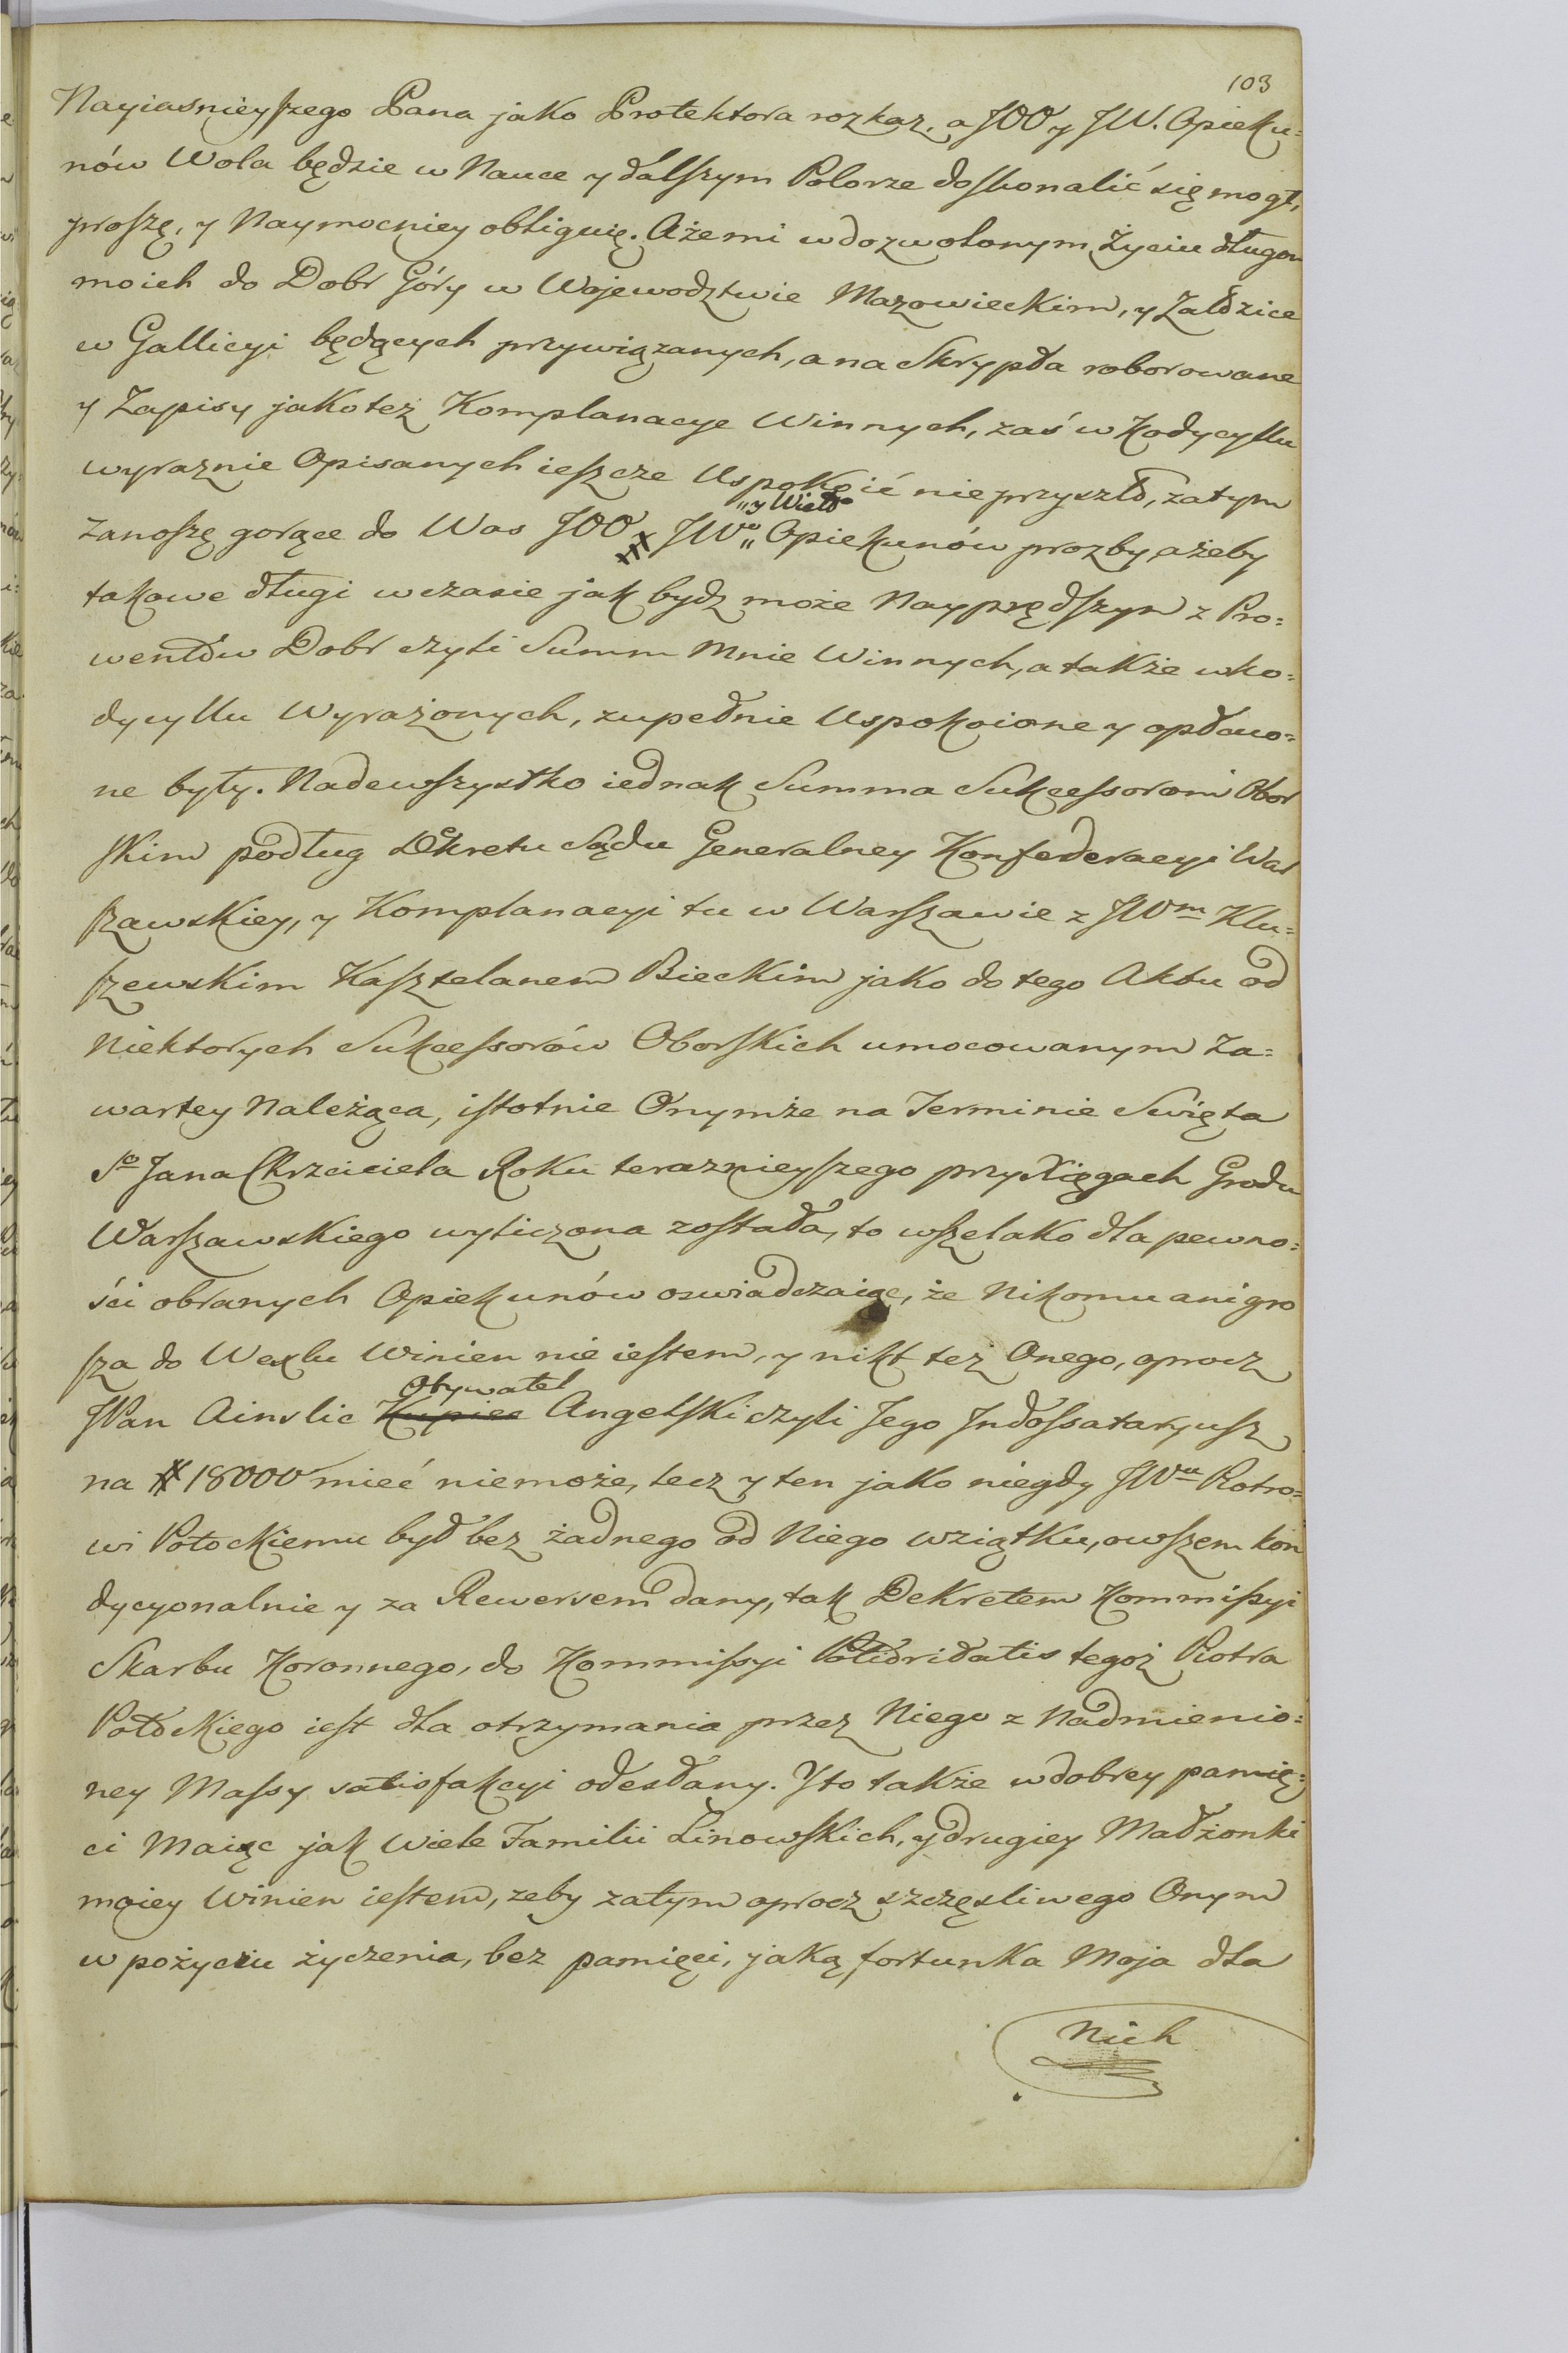 103
Nayiasnieyszego Pana jako Protektora rozkaz, a JOO y JW. Opieku=
nów Wola będzie w Nauce y dalszym Polorze doskonalić się mogł,
proszę, y Naymocniey obliguię. Aże mi w dozwolonym Życiu długow
moich do Dobr Góry w Wojewodztwie Mazowieckim, y Załzice
w Gallicyi będących przywiązanych, a na Skrypta roborowane
y Zapisy jako też Komplanacye Winnych, zaś w Kodycyllu
wyraznie Opisanych ieszcze Uspokoić nie przyszło, zatym
"y Wielo
zanoszę gorące do Was JOO JWo" Opiekunów prozby, ażeby
takowe długi w czasie jak bydz może Nayprędszym z Pro=
wentów Dobr czyli Summ Mnie Winnych, a także w ko=
dycyllu Wyrażonych, zupełnie Uspokoione y opłaco=
ne były. Nadewszystko iednak Summa Sukcessorom Obor
skim podług Dekretu Sądu Generalney Konfederacyi War
szawskiey, y Komplanacyi tu w Warszawie z JWm Klu=
szewskim Kasztelanem Bieckim jako do tego Aktu od
Niektorych Sukcessorów Oborskich umocowanym za=
wartey Należąca, istotnie Onymże na Terminie Swięta
So Jana Chrzciciela Roku terazznieyszego przy Xięgach Grodu
Warszawskiego wyliczona została, to wszelako dla pewno=
ści obranych Opiekunów oswiadczaiąc, że Nikomu ani gro
sza do Wexlu Winien nie iestem, y nikt też Onego, oprocz
Obywatel
JPan Ainslie Kupiec Angelski czyli Jego Indossataryusz
na # 18000 mieć niemoże, lecz y ten jako niegdy JWu Piotro=
wi Potockiemu był bez żadnego od Niego wziątku, owszem kon
dycyonalnie y za Rewersem dany, tak Dekretem Kommissyi
Skarbu Koronnego, do Kommissyi Potioritatis tegoż Piotra
Potockiego iest dla otrzymania przez Niego z Nadmienio=
ney Massy satisfakcyi odesłany. Y to także w dobrey pamię=
ci Maiąc jak wiele Familii Linowskich, y drugiey Małżonki
moiey Winien iestem, zeby zatym oprocz szczęsliwego Onym
w pożyciu życzenia, bez pamięci, jaką fortunka Moja dla
Nich